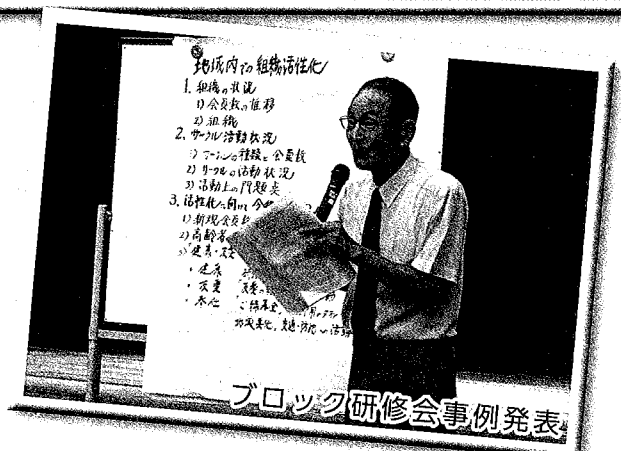 地域内での組織活性化
1. 組織の状況
1) 会員数の推移
2) 組織
2. サークル活動状況
1) サークルの種類と会員数
2) サークルの活動状況
3) 活動上の問題点
3. 活性化に向けて今
1) 新規会員
2) 高齢者
3) 「健康・友愛
・健康
・友愛 「友愛
・奉仕
地域美化、交通・防犯の活動
ブロック研修会事例発表